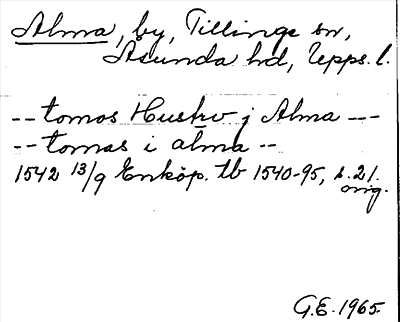 Alma, by, Tillinge sn,
Åsunda hd, Upps. l.
-- tomos Hustrv j Alma ---
-- tomas i alma --
1542 13/9 Enköp. tb 1540-95, s. 21.
orig.
G.E. 1965.